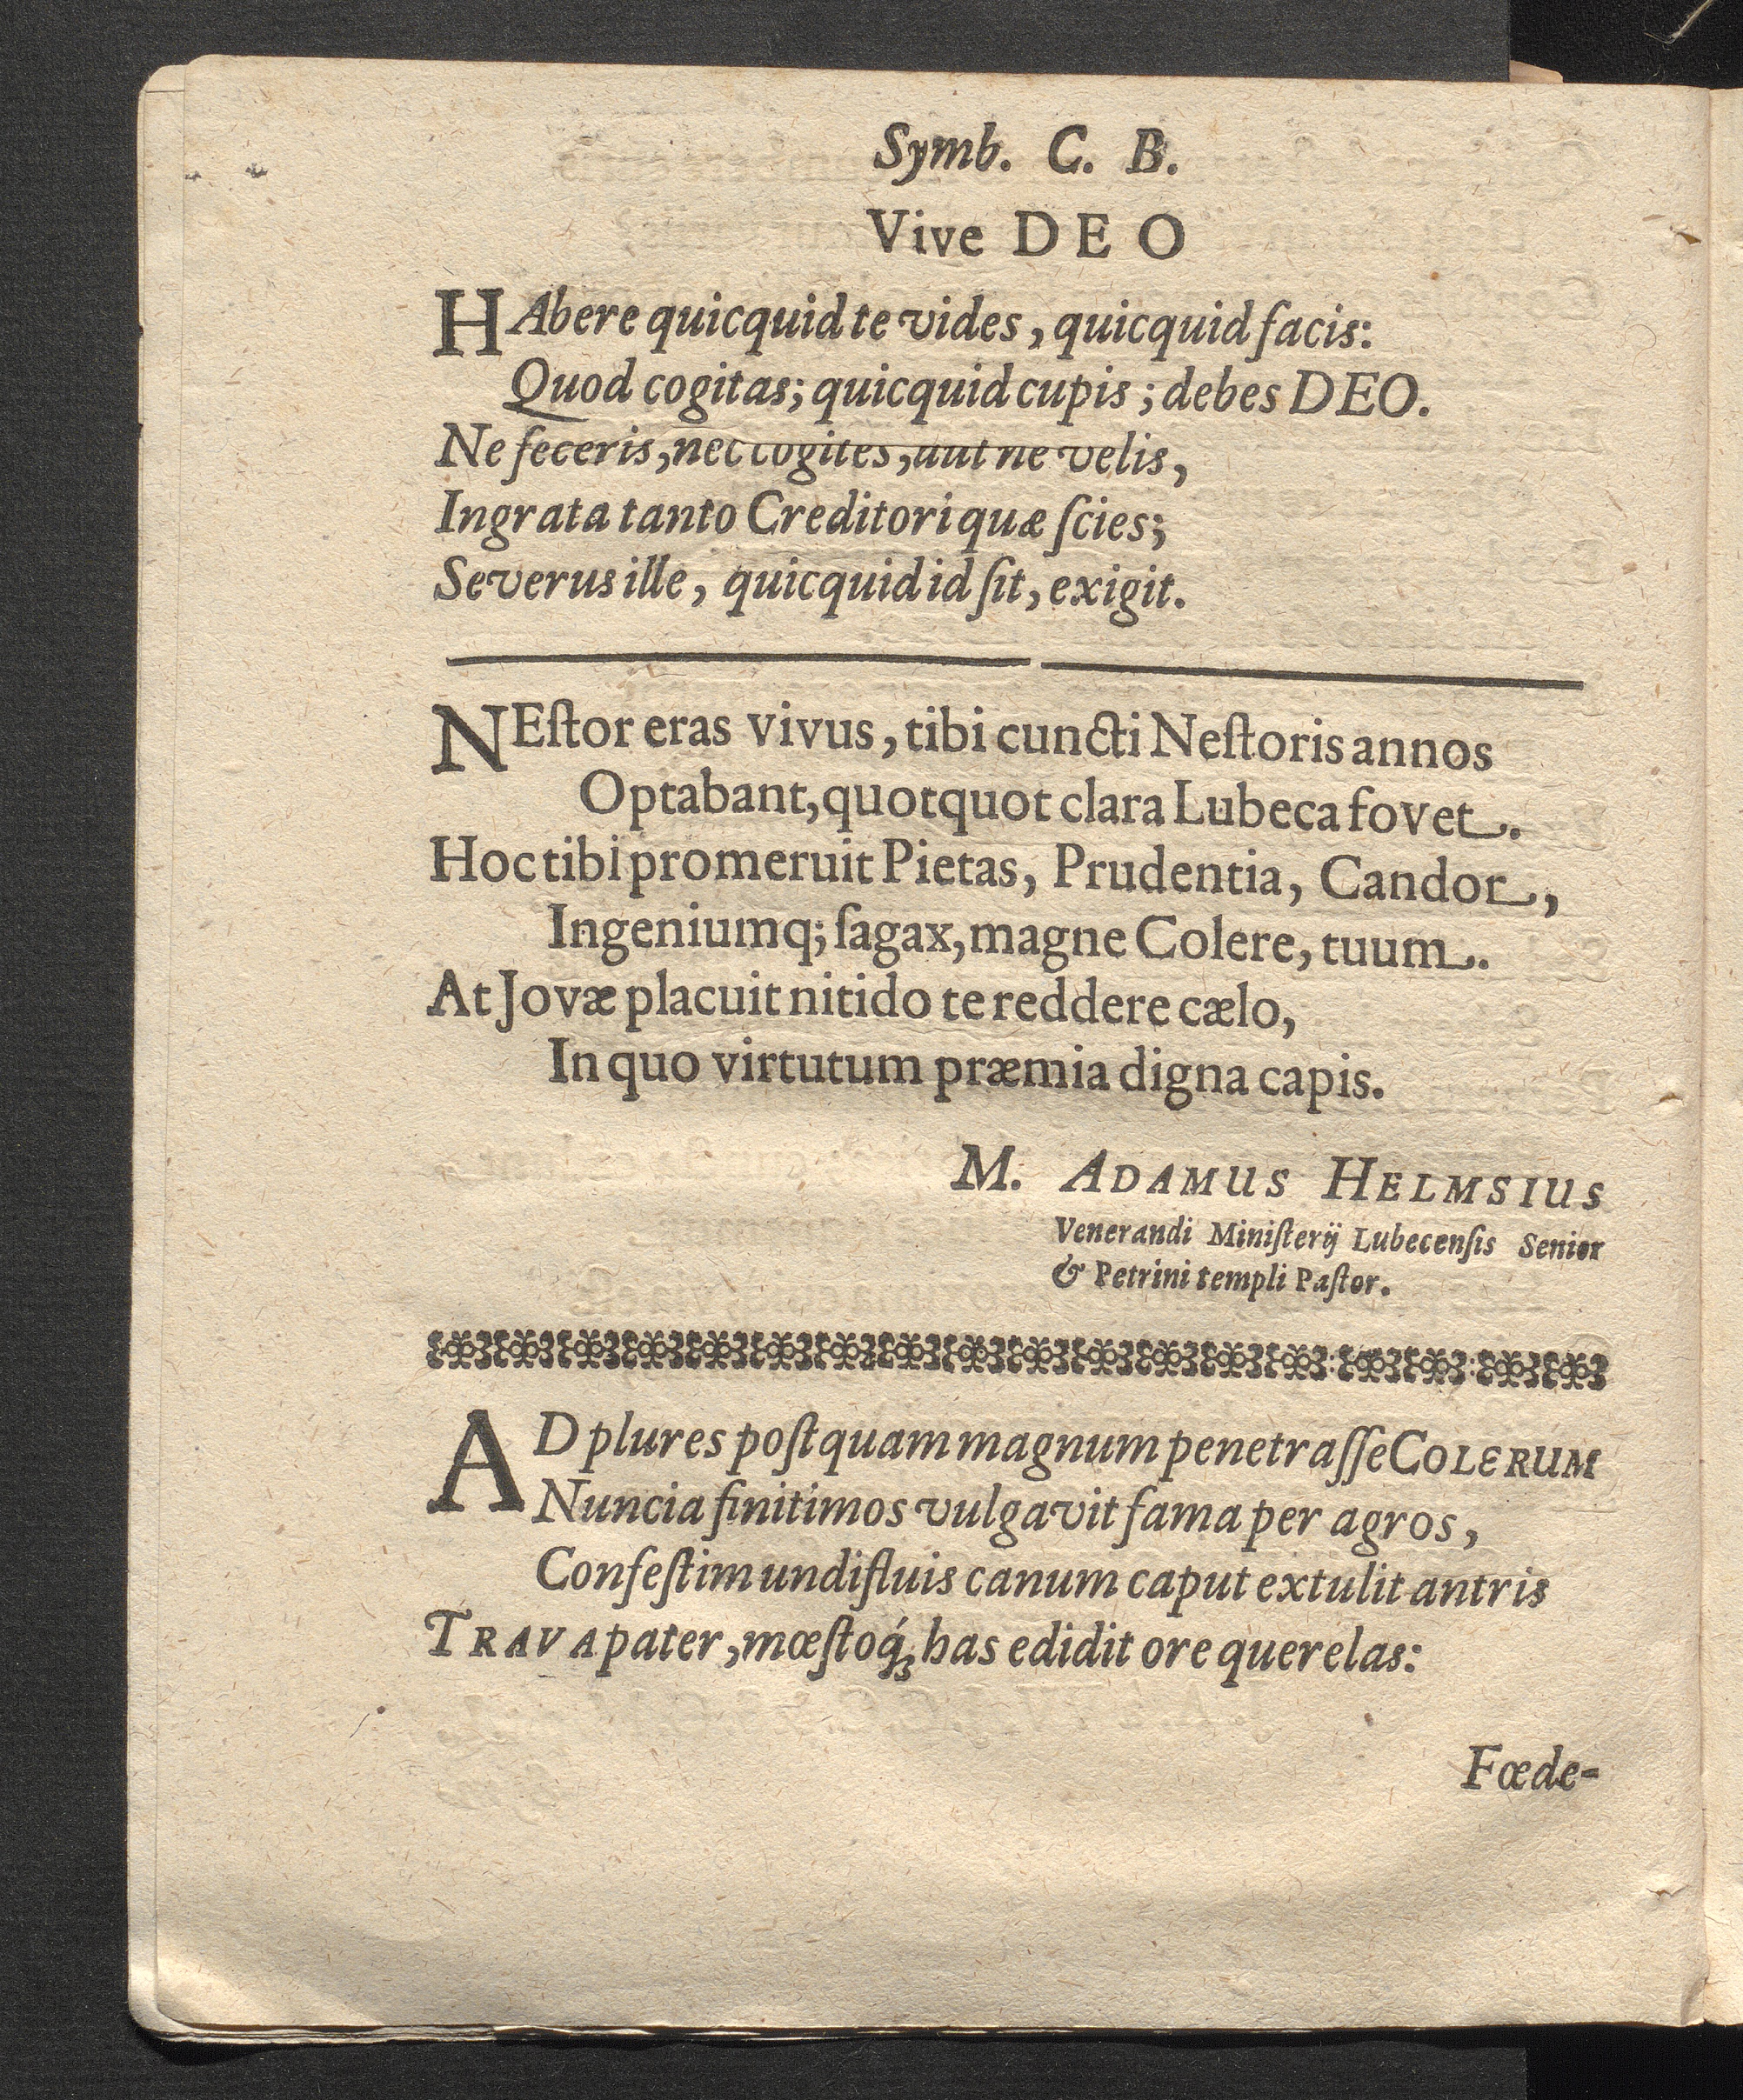 Symb. C. B.
Vive DEO
HAbere quicquid te vides, quicquid facis:
Quod cogitas; quicquid cupis; debes DEO.
Ne feceris, nec cogites, aut ne velis,
Ingrata tanto Creditori quæ ſcies;
Severus ille, quicquid id ſit, exigit.
NEſtor eras vivus, tibi cuncti Neſtoris annos
Optabant, quotquot clara Lubeca fovet.
Hoc tibi promeruit Pietas, Prudentia, Candor,
Ingeniumq; ſagax, magne Colere, tuum.
At Jovæ placuit nitido te reddere cælo,
In quo virtutum præmia digna capis.
M. ADAMUS HELMSIUS
Venerandi Miniſterij Lubecenſis Senior
& Petrini templi Paſtor.
AD plures poſtquam magnum penetraſſe COLERUM
Nuncia finitimos vulgavit fama per agros,
Confeſtim undifluis canum caput extulit antris
TRAVA pater, mœſtoq́ꝫ has edidit ore querelas:
Fœde-